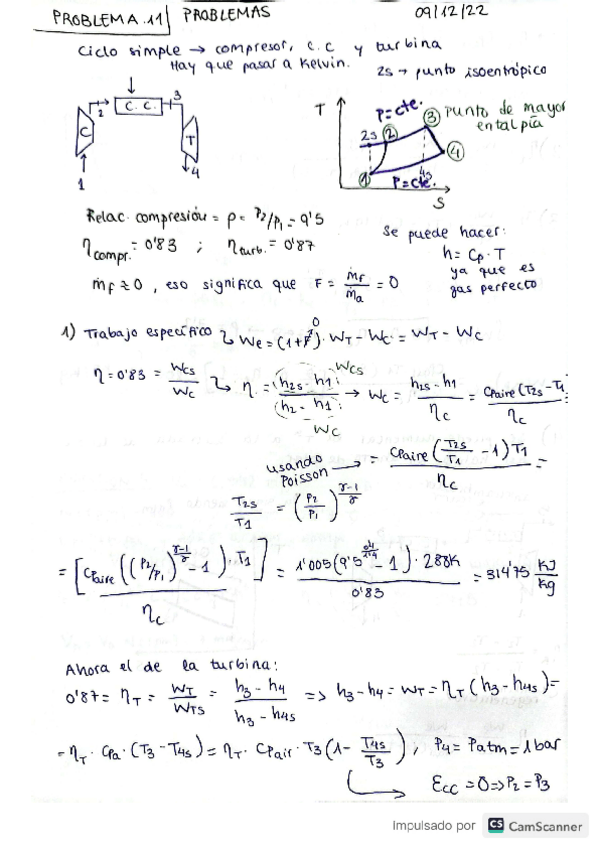 PROBLEMA.11 PROBLEMAS 09/12/22
Ciclo simple → compresor, c.c y turbina
Hay que pasar a Kelvin.
2s → punto isoentrópico
C
1
2
C.C.
3
T
4
T
P=cte.
2s
2
3
punto de mayor
entalpía
4
4s
1
P=cte.
S
Relac. compresión = ρ = P2/P1 = 9'5
ηcompr. = 0'83 ; ηturb. = 0'87
ṁf ≈ 0, eso significa que F = ṁf/ṁa = 0
Se puede hacer:
h = Cp · T
ya que es
gas perfecto
1) Trabajo específico ↝ We = (1+F)·WT - WC = WT - WC
0
η = 0'83 = WCS/WC ↝ η = (h2s - h1)/(h2 - h1) → WC = (h2s - h1)/ηc = CPaire(T2s - T1)/ηc
WCS
WC
usando
Poisson → = CPaire(T2s/T1 - 1)T1/ηc =
T2s/T1 = (P2/P1)^(γ-1/γ)
= [CPaire((P2/P1)^(γ-1/γ) - 1)·T1]/ηc = 1'005(9'5^(0'4/1'4) - 1)·288K/0'83 = 314'75 KJ/Kg
Ahora el de la turbina:
0'87 = ηT = WT/WTS = (h3 - h4)/(h3 - h4s) => h3 - h4 = WT = ηT(h3 - h4s) =
= ηT · CPa · (T3 - T4s) = ηT · CPair · T3(1 - T4s/T3), P4 = Patm = 1bar
Ecc = 0 => P2 = P3
Impulsado por CS CamScanner